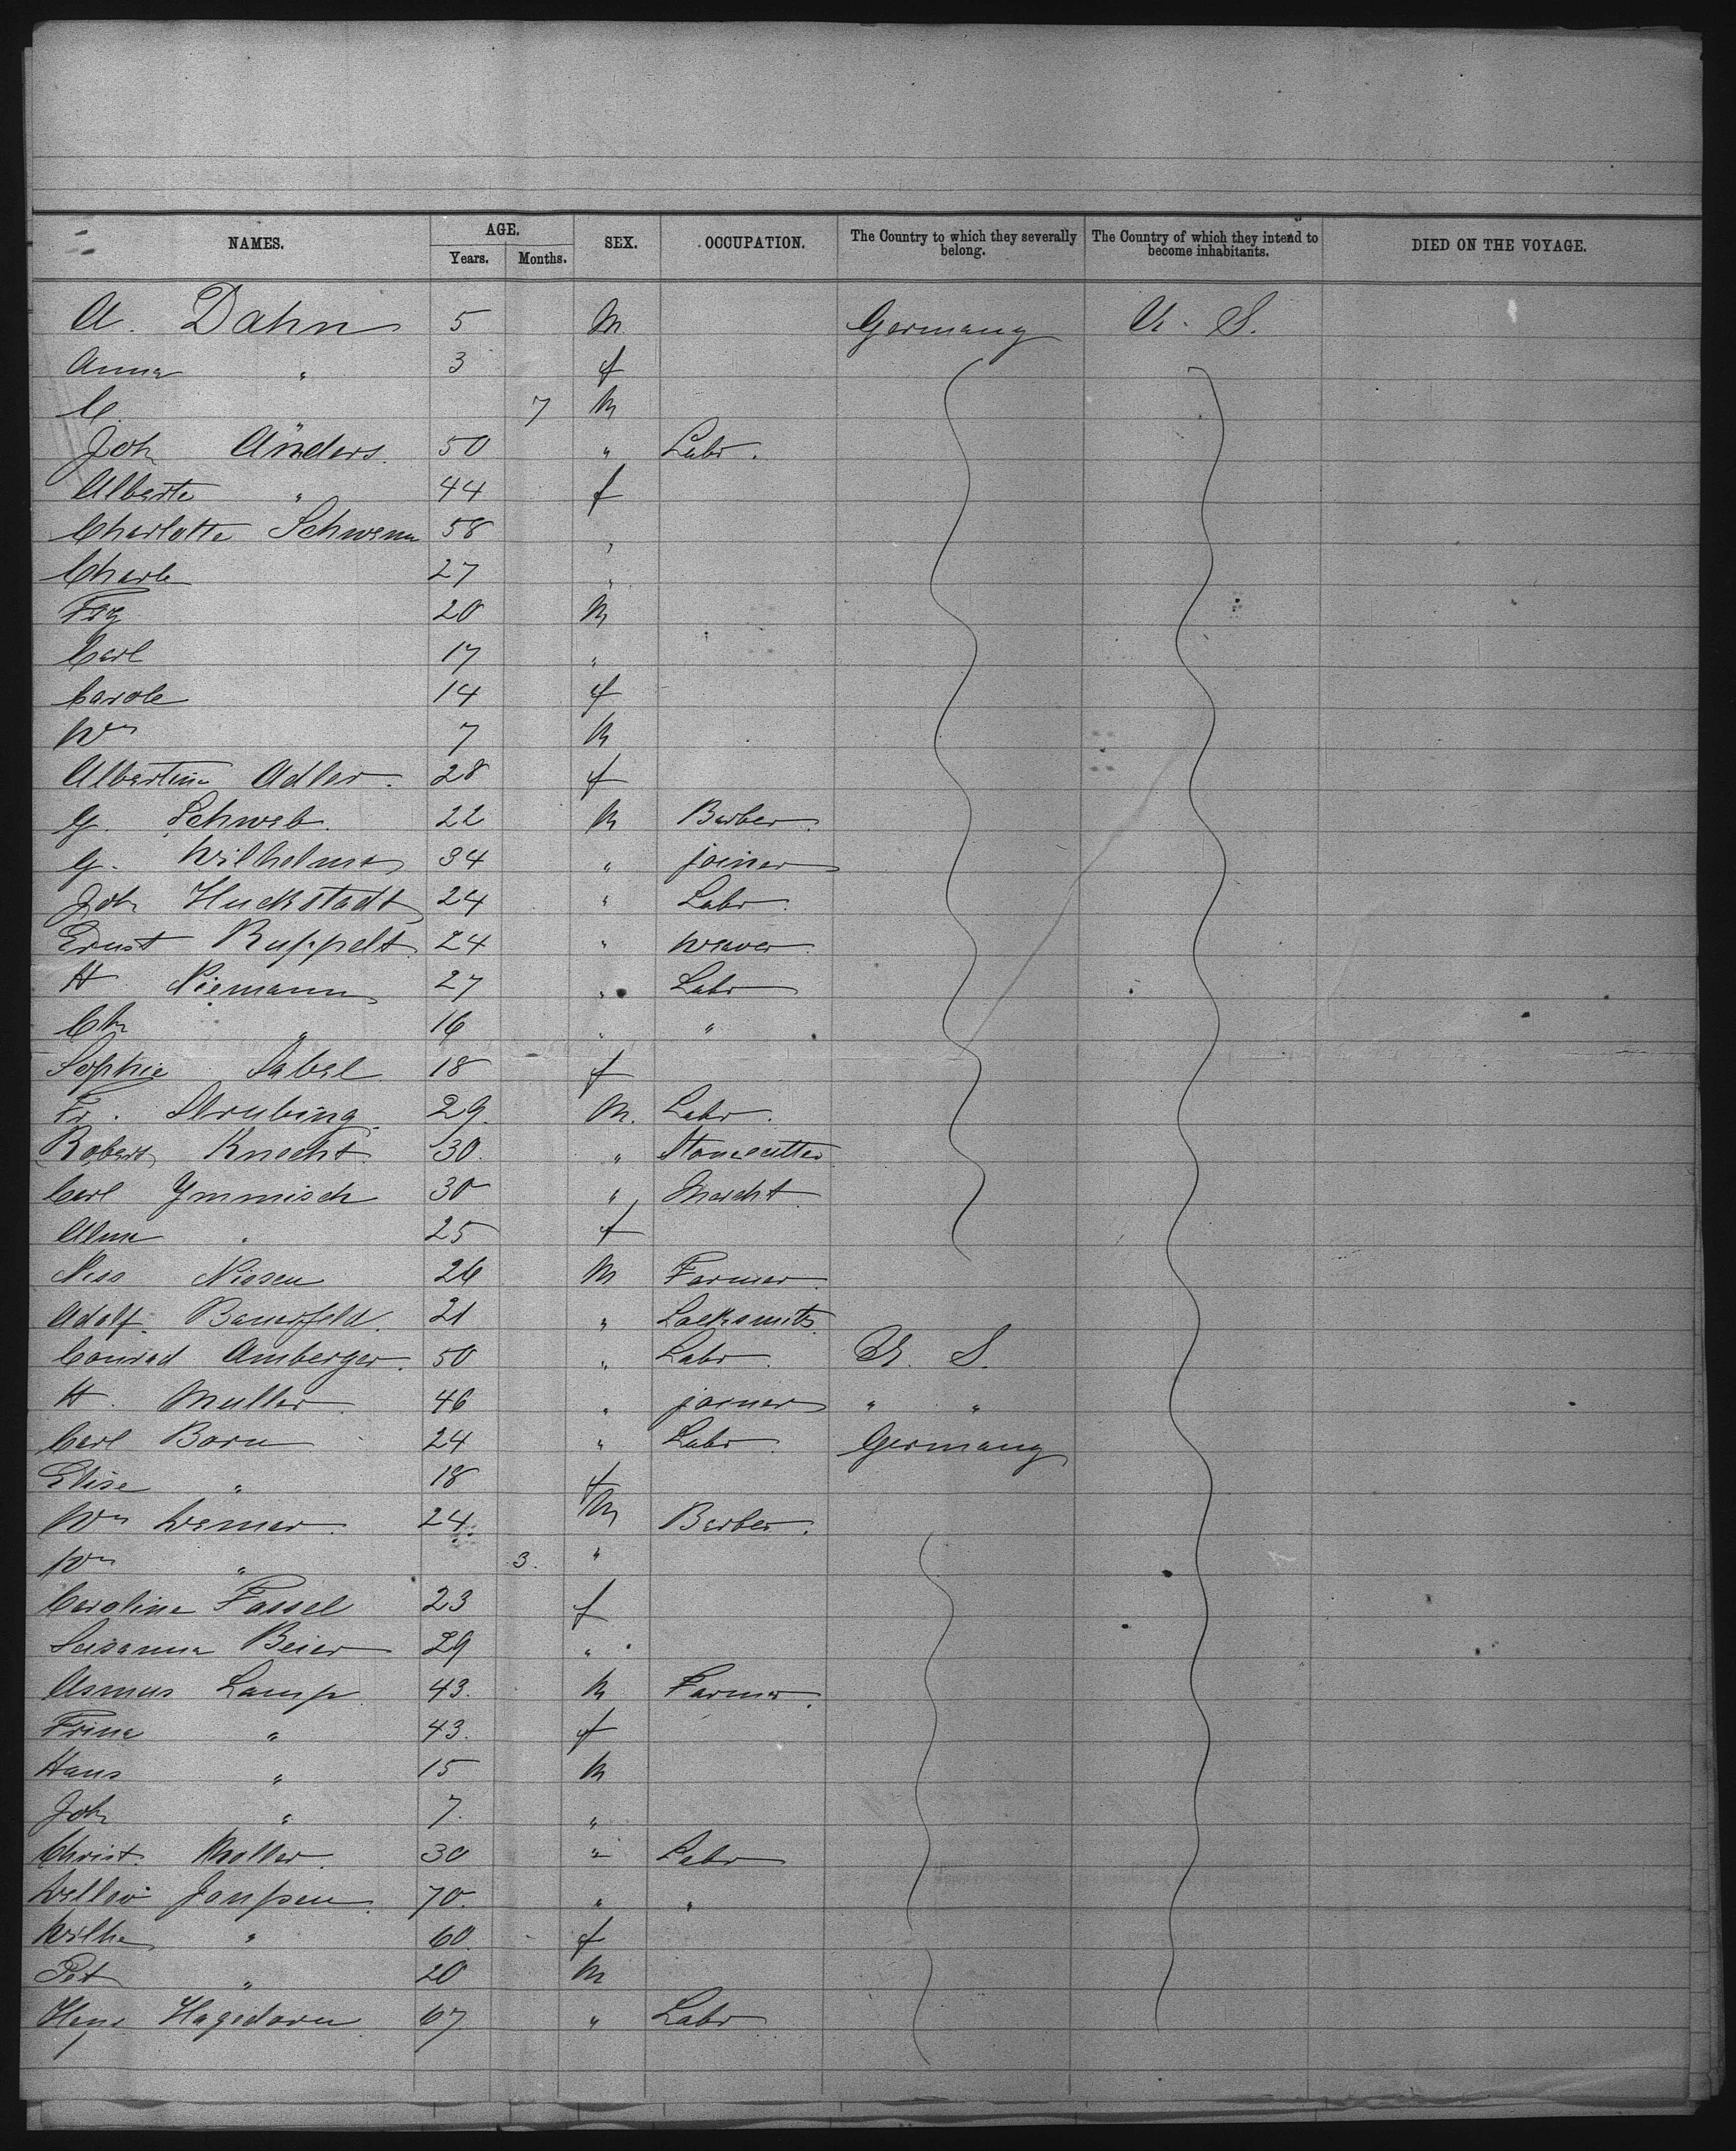 NAMES. AGE. Years. Months. SEX. OCCUPATION. The Country to which they severally belong. The Country of which they intend to become inhabitants. DIED ON THE VOYAGE.
A. Dahn 5 M Germany U. S.
Anna " 3 f
C. " 7 M
Joh Anders 50 " Labr.
Alberte " 44 f
Charlotte Schwenn 58 "
Charle 27 "
Frz 20 M
Carl 17 "
Carole 14 f
Wm 7 M
Albertine Adler. 28 f
G. Schweb. 22 M Barber.
G. Wilhelms 34 " joiner
Joh Huckstadt 24 " Labr.
Ernst Ruppelt 24 " weaver
H Niemann 27 " Labr
Chr " 16 " "
Sophie Sabel 18 f
Fr. Strubing. 29. M. Labr.
Robert Knecht 30. " Stonecutter
Carl Ymmisch 30 " Marcht
Alma " 25 f
Niss Nissen 26 M Farmer.
Adolf. Bauerfeld. 21 " Locksmith.
Conrad Amberger. 50 " Labr. U. S.
H. Muller. 46 " joiner " "
Carl Born 24 " Labr. Germany
Elise " 18 f
Wm Werner. 24. M Barber.
Wm " 3. "
Caroline Fassel 23 f
Susanna Beier 29 "
Asmus Lamp 43. M Farmer.
Trina " 43. f
Hans " 15 M
Joh " 7. "
Christ. Moller. 30 " Labr
Detlev 70. " "
" 60. f
Pet " 20 M
Hans Hagedorn 67 " Labr